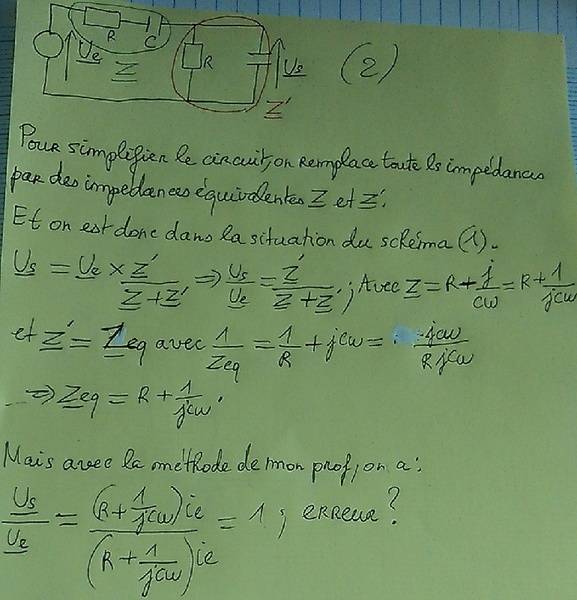 R C R Ue Z Us Z' (2)
Pour simplifier le circuit, on remplace toute ls impédances
par des impédances équivalentes Z et Z'.
Et on est donc dans la situation du schéma (1).
Us = Ue × Z'/(Z+Z') ⇒ Us/Ue = Z'/(Z+Z') ; Avec Z = R - j/cω = R + 1/jcω
et Z' = Zeq avec 1/Zeq = 1/R + jcω = jcω/Rjcω
⇒ Zeq = R + 1/jcω.
Mais avec la méthode de mon prof, on a :
Us/Ue = (R + 1/jcω) ie / (R + 1/jcω) ie = 1 ; erreur ?